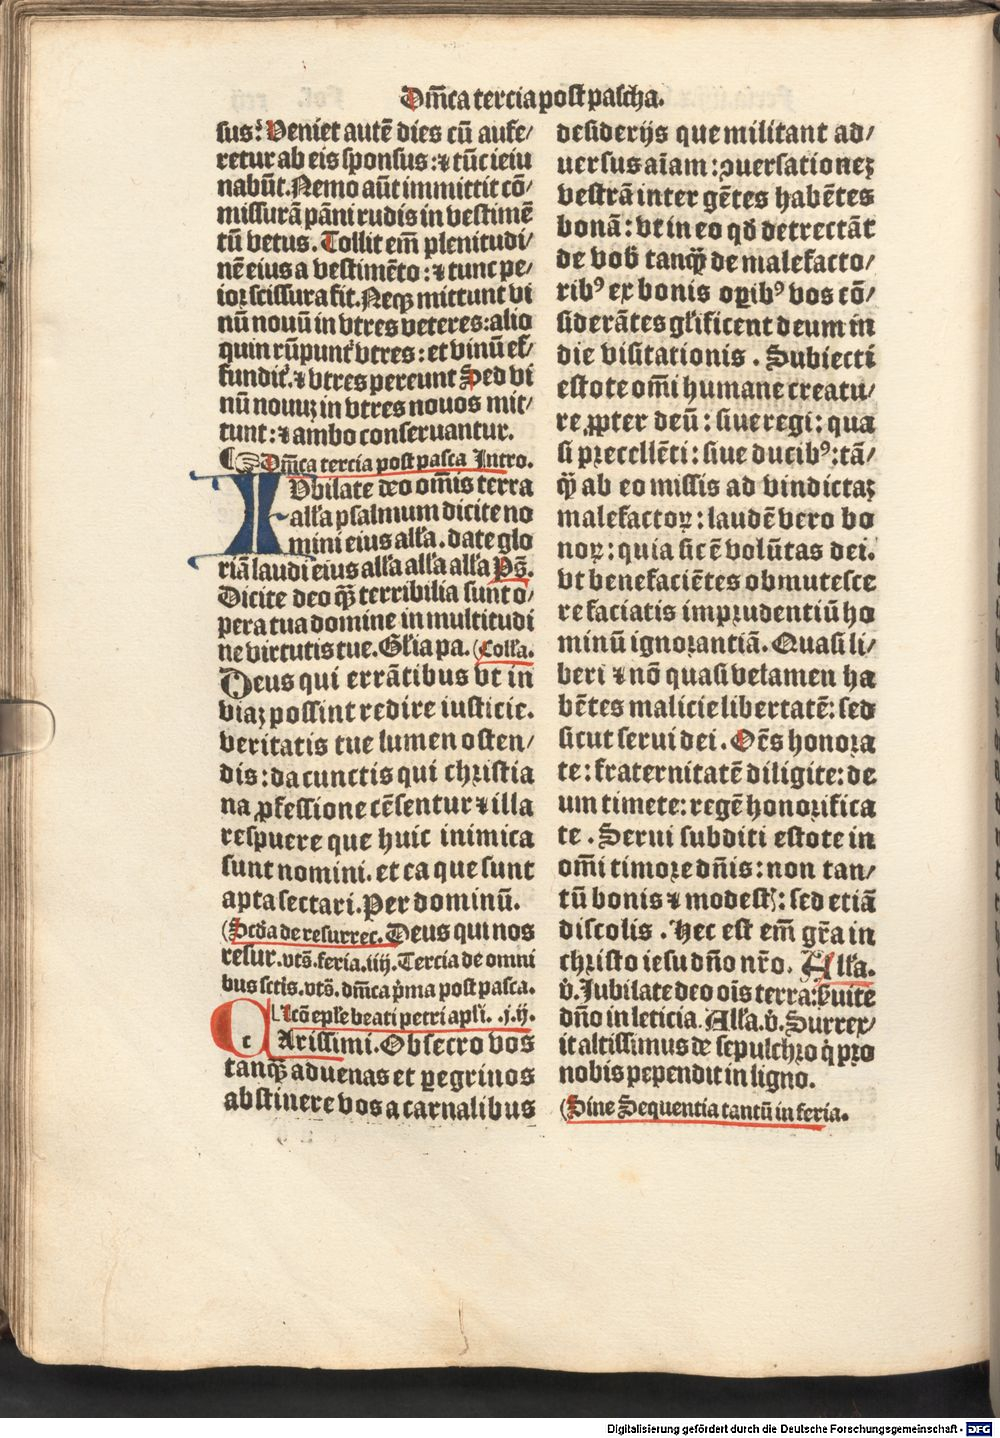 Dm̄ca tercia post pascha.
sus? Veniet autē dies cū aufe/
retur ab eis sponsus: ⁊ tūc ieiu
nabūt. Nemo aūt immittit cō/
missurā pāni rudis in vestimē
tū vetus. Tollit em̄ plenitudi/
nē eius a vestimēto: ⁊ tunc pe/
ioꝛ scissura fit. Neqꝫ mittunt vi
nū nouū in vtres veteres: alio
quin rūpunt᷑ vtres: et vinū ef/
fundit᷑. ⁊ vtres pereunt Sed vi
nū nouuꝫ in vtres nouos mit/
tunt: ⁊ ambo conseruantur.
¶ Dm̄ca tercia post pasca Intro.
IVbilate deo om̄is terra
all'a psalmum dicite no
mini eius all'a. date glo
riā laudi eius all'a all'a all'a Ps̄.
Dicite deo qꝫ̄ terribilia sunt o/
pera tua domine in multitudi
ne virtutis tue. Gl'ia pa. (Coll'a.
Deus qui errātibus vt in
viaꝫ possint redire iusticie.
veritatis tue lumen osten/
dis: da cunctis qui christia
na ꝓfessione cēsentur ⁊ illa
respuere que huic inimica
sunt nomini. et ea que sunt
apta sectari. Per dominū.
(Scd'a de resurrec. Deus qui nos
resur. vts̄. feria. iiij. Tercia de omni
bus sctīs. vts̄. dm̄ca p̄ma post pasca.
Lc̄o ep̄le beati petri apl'i. .j. ij.
CArissimi. Obsecro vos
tanqꝫ̄ aduenas et ꝑegrinos
abstinere vos a carnalibus
desiderijs que militant ad/
uersus aīam: ꝯuersationeꝫ
vestrā inter gētes habētes
bonā: vt in eo qd̄ detrectāt
de vob̄ tanqꝫ̄ de malefacto/
ribꝰ ex bonis oꝑibꝰ vos cō/
siderātes gl'ificent deum in
die visitationis. Subiecti
estote om̄i humane creatu/
re ꝓpter deū: siue regi: qua
si pꝛecellēti: siue ducibꝰ: tā/
qꝫ̄ ab eo missis ad vindictaꝫ
malefactoꝝ: laudē vero bo
noꝝ: quia sic ē volūtas dei.
vt benefaciētes obmutesce
re faciatis impꝛudentiū ho
minū ignoꝛantiā. Quasi li/
beri ⁊ nō quasi velamen ha
bētes malicie libertatē: sed
sicut serui dei. Oēs honoꝛa
te: fraternitatē diligite: de
um timete: regē honoꝛifica
te. Serui subditi estote in
om̄i timoꝛe dn̄is: non tan/
tū bonis ⁊ modest[ꝭ]: sed etiā
discolis. Hec est em̄ gr̄a in
christo iesu dn̄o nr̄o. All'a.
v̄. Iubilate deo oīs terra: ẜuite
dn̄o in leticia. All'a. v̄. Surrex/
it altissimus de sepulchꝛo q̇ pꝛo
nobis pependit in ligno.
(Sine Sequentia tantū in feria.
Digitalisierung gefördert durch die Deutsche Forschungsgemeinschaft - DFG